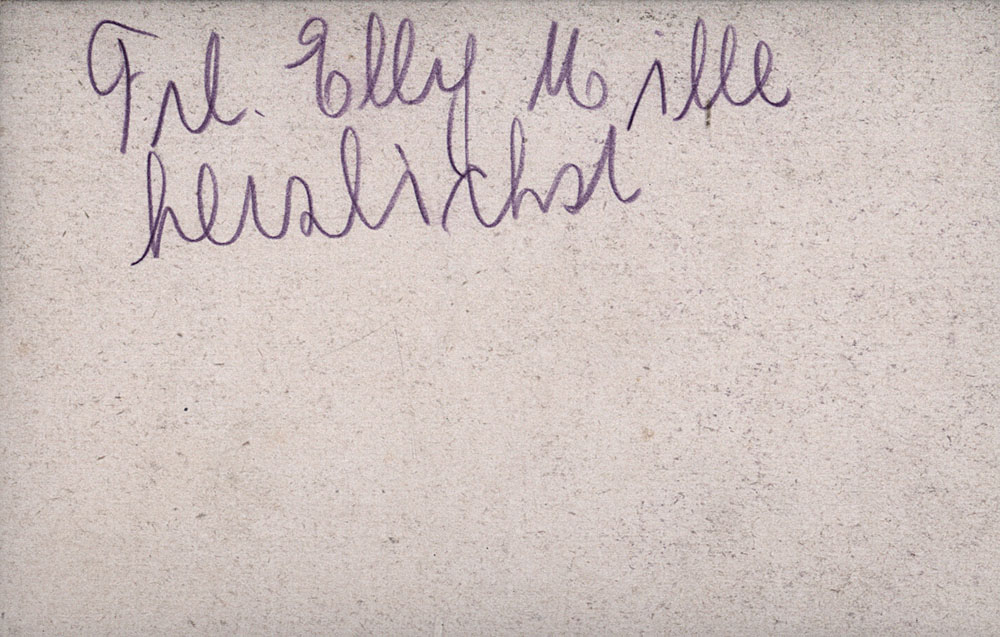 Frl. Elly Mille
herzlichst